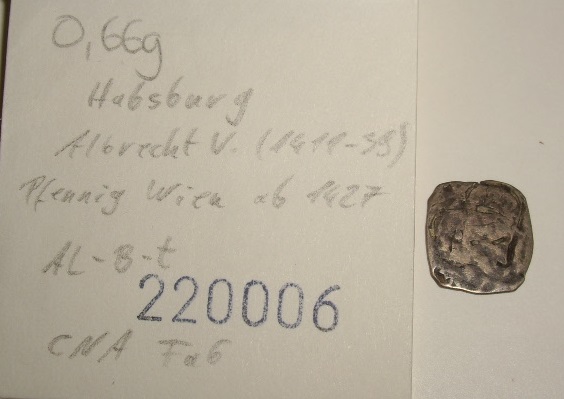 0,66g
Habsburg
Albrecht V. (1411-39)
Pfennig Wien ab 1427
AL-B-t
220006
CNA Fa6